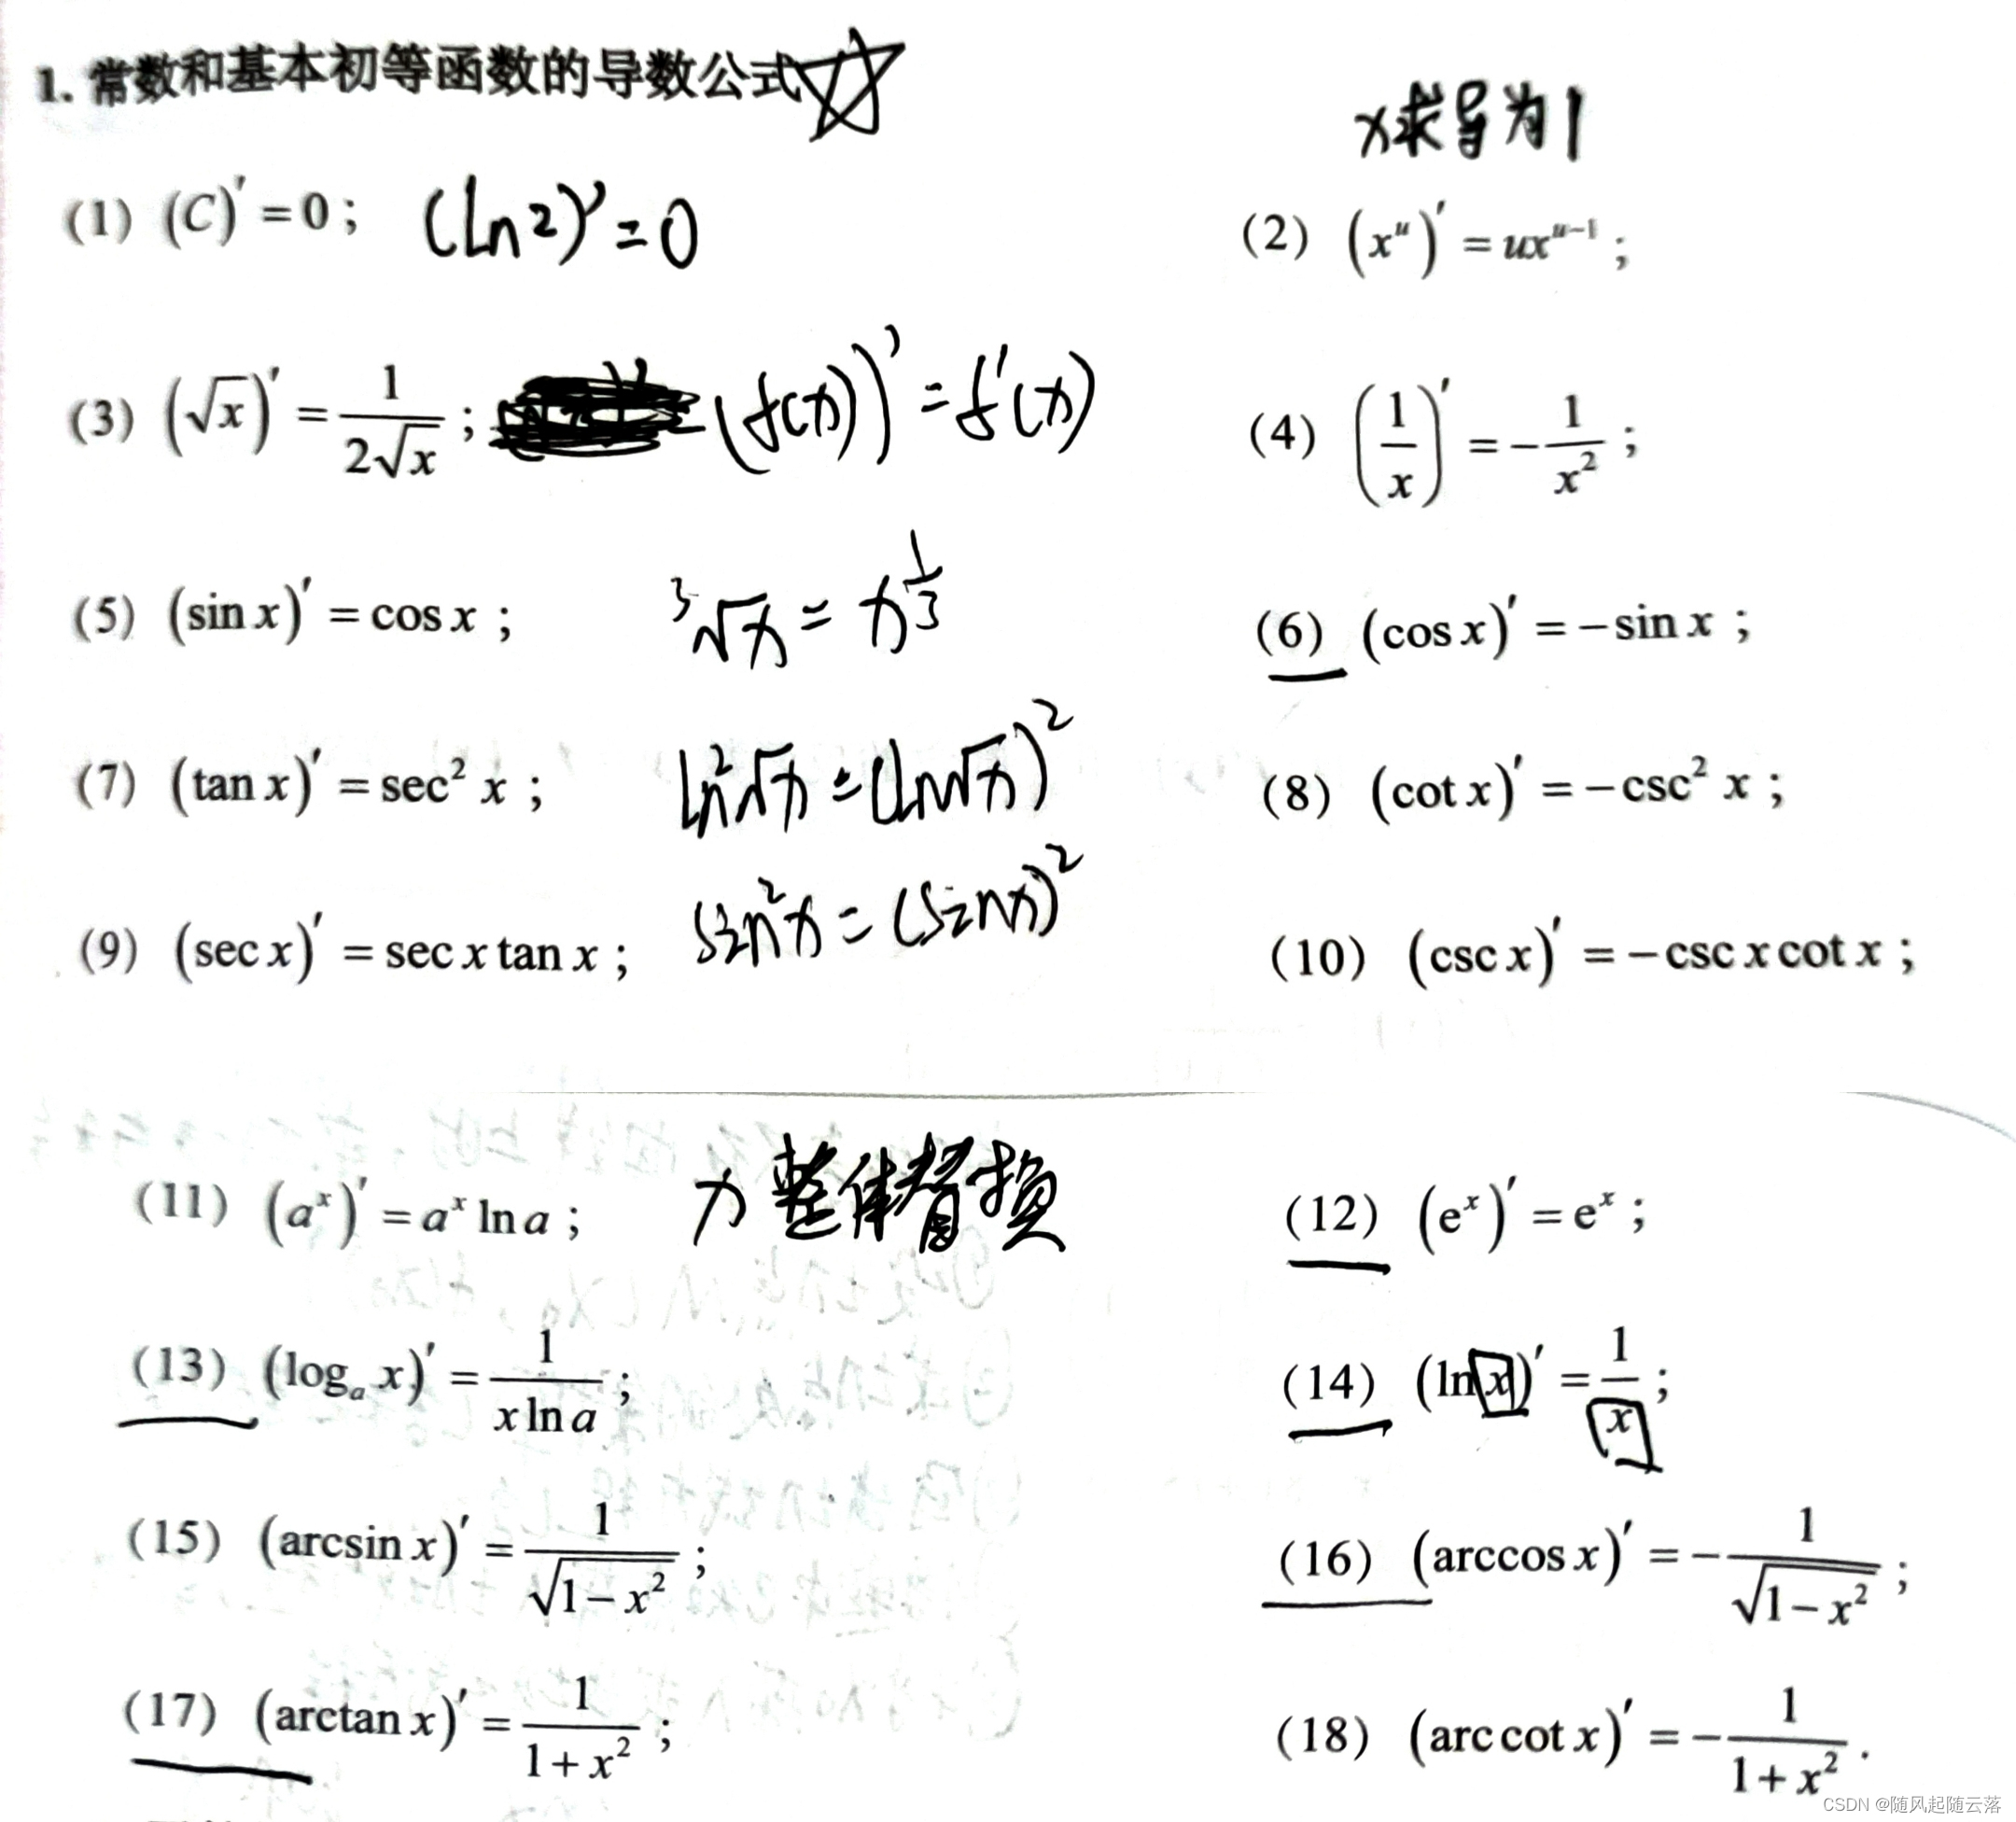 1. 常数和基本初等函数的导数公式
x求导为1
(1) (C)′ = 0; (ln2)′ = 0
(2) (xᵘ)′ = uxᵘ⁻¹;
(3) (√x)′ = 1/(2√x); (f(x))′ = f′(x)
(4) (1/x)′ = −1/x²;
(5) (sin x)′ = cos x; ³√x = x^(1/3)
(6) (cos x)′ = −sin x;
(7) (tan x)′ = sec² x; ln²√x = (ln√x)²
(8) (cot x)′ = −csc² x;
(9) (sec x)′ = sec x tan x; sin²x = (sinx)²
(10) (csc x)′ = −csc x cot x;
(11) (aˣ)′ = aˣ ln a; 整体替换
(12) (eˣ)′ = eˣ;
(13) (logₐ x)′ = 1/(x ln a);
(14) (ln x)′ = 1/x;
(15) (arcsin x)′ = 1/√(1−x²);
(16) (arccos x)′ = −1/√(1−x²);
(17) (arctan x)′ = 1/(1+x²);
(18) (arc cot x)′ = −1/(1+x²).
CSDN @随风起随云落